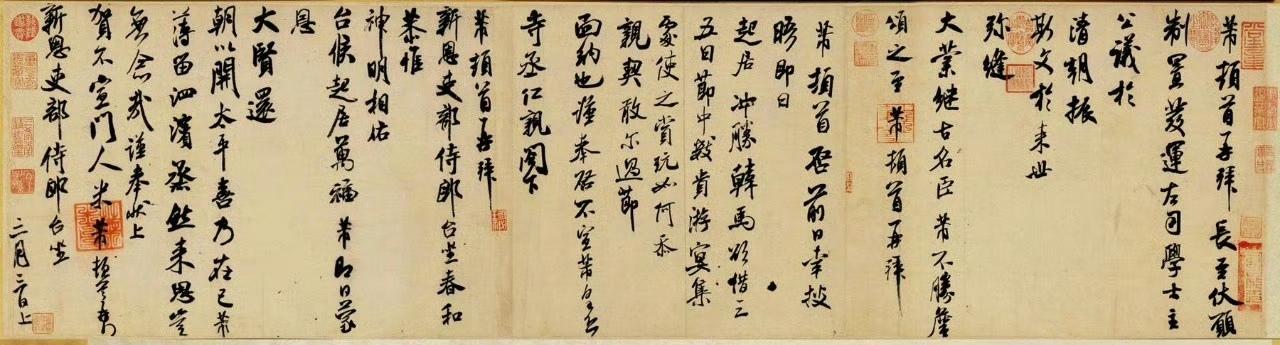 芾頓首再拜 長至伏願
制置發運左司學士主
公議於
清朝振
斯文於來世
彌縫
大業繼古名臣芾不勝詹
頌之至芾頓首再拜
芾頓首啓前日幸披
晤即日
起居沖勝韓馬欲借三
五日節中數貴游冥集
處使之賞玩如何忝
親契敢尓過節
面納也謹奉啓不宣芾皇恐
寺丞仁親閣下
芾頓首再拜
新恩吏部侍郎台坐春和
恭惟
神明相佑
台候起居萬福芾即日蒙
恩
大賢還
朝以開太平喜乃在己芾
薄留泗濱丞然來思豈
無念哉謹奉狀上
賀不宣門人米芾頓首
新恩吏部侍郎台坐
三月二日上